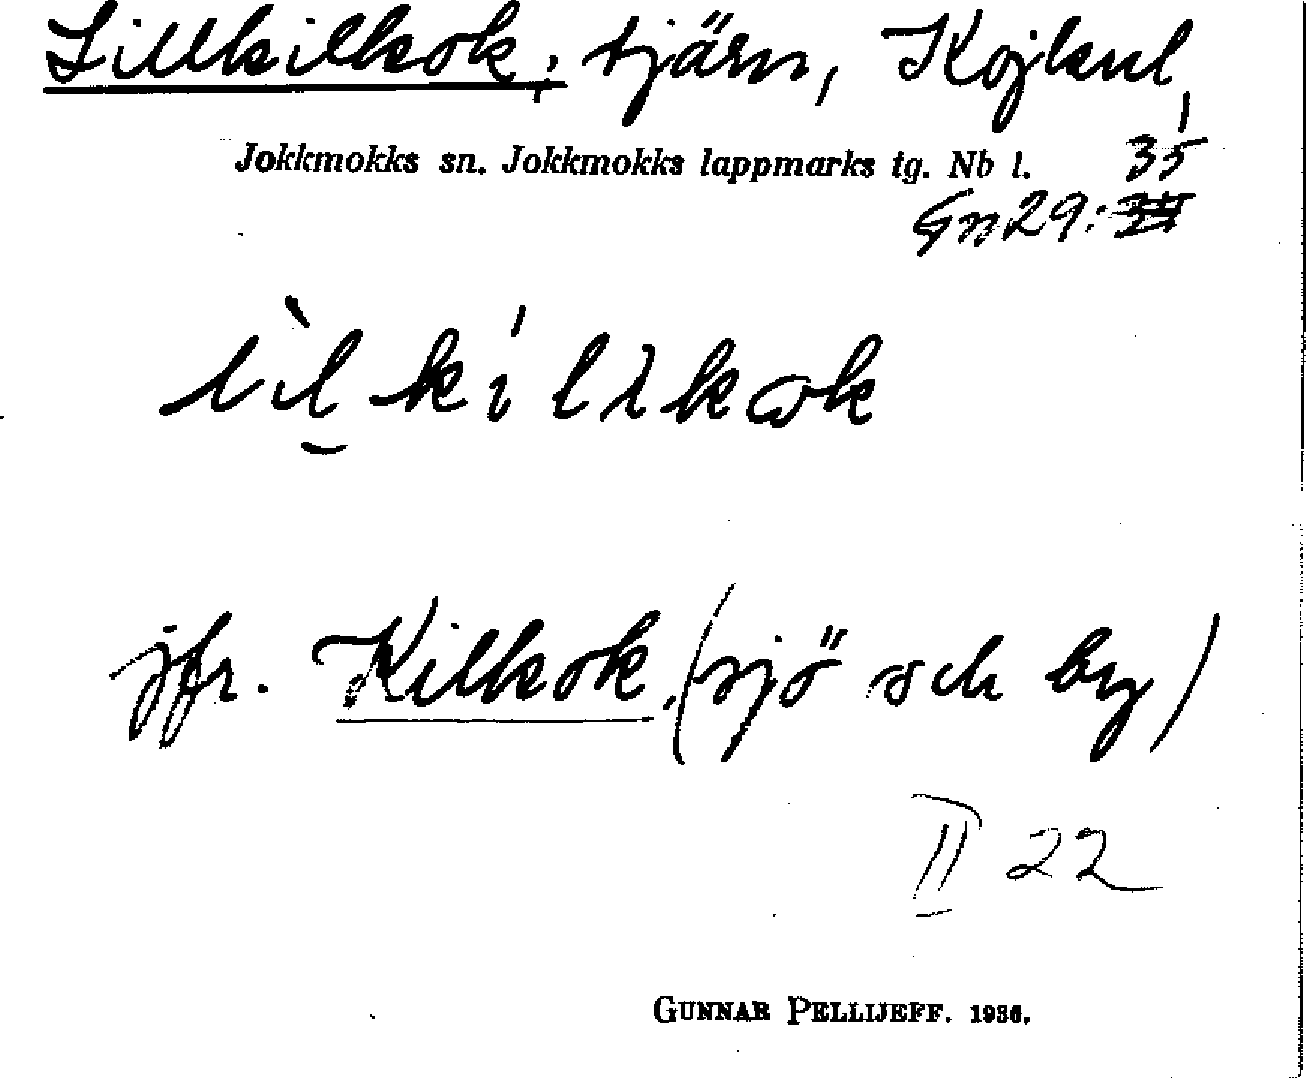 Lillkilkok; tjärn, Kojkul,
Jokkmokks sn. Jokkmokks lappmarks tg. Nb l. 35
Gn29:
jfr. Kilkok, (sjö och by)
II 22
GUNNAR PELLIJEFF. 1936.